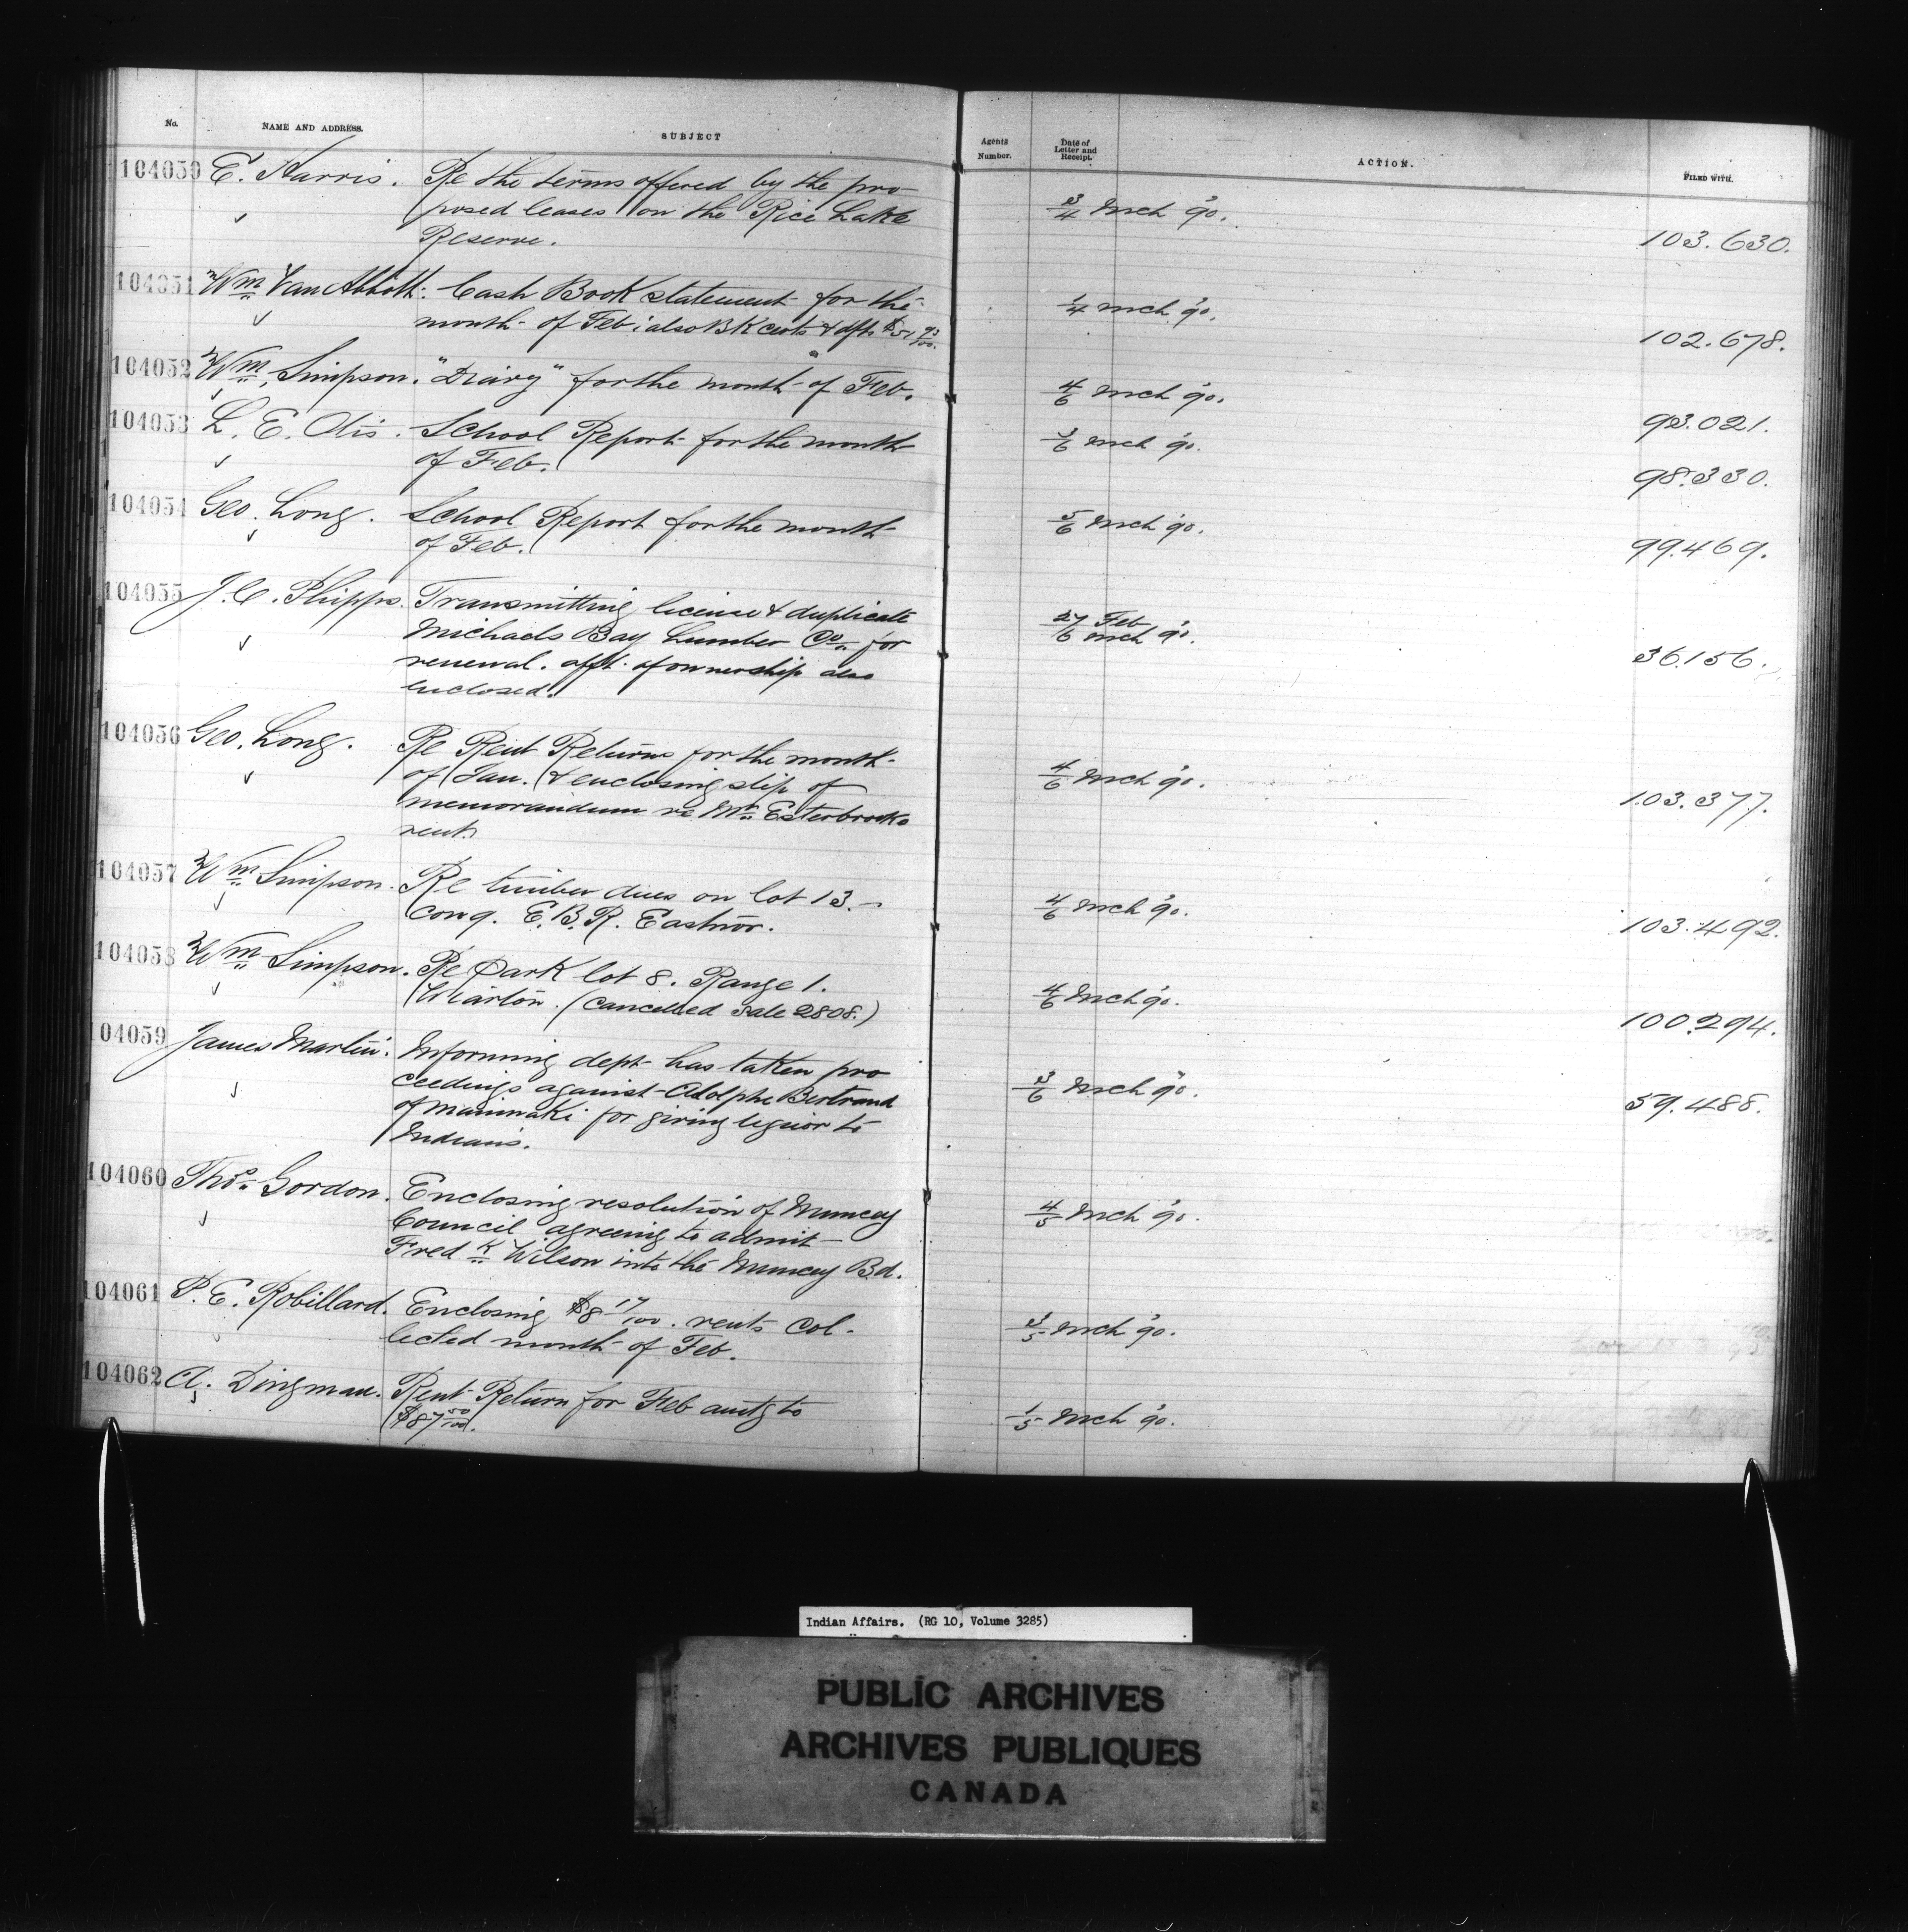 No. NAME AND ADDRESS. SUBJECT Agents Number. Date of Letter and Receipt. ACTION. FILED WITH.
104050 E. Harris. Re the terms offered by the pro-
posed leases on the Rice Lake
Reserve.
3/4 Mch '90.
103.630.
104051 Wm Van Abbott. Cash Book statement for the
month of Feb: also BK certs & dft $51 93/100.
1/4 Mch '90.
102.678.
104052 Wm Simpson. "Diary" for the month of Feb.
4/6 Mch '90.
93.021.
104053 L. E. Otis. School Report for the month
of Feb.
3/6 Mch '90.
98.330.
104054 Geo. Long. School Report for the month
of Feb.
5/6 Mch '90.
99.469.
104055 J. C. Phipps. Transmitting license & duplicate
Michaels Bay Lumber Co. for
renewal. afft. of ownership also
enclosed.
27 Feb
6 Mch '90.
36.156.
104056 Geo. Long. Re Rent Returns for the month
of Jan. & enclosing slip of
memorandum re Mr. Esterbrooks
rent.
4/6 Mch '90.
103.377.
104057 Wm Simpson. Re timber dues on lot 13.
con 9. E.B.R. Eastnor.
4/6 Mch '90.
103.492.
104058 Wm Simpson. Re Park lot 8. Range 1.
Wiarton. (Cancelled Sale 2808.)
4/6 Mch '90.
100.294.
04059 James Martin. Informing dept has taken pro
ceedings against Adolphe Bertrand
of Maniwaki for giving liquor to
Indians.
3/6 Mch '90.
59.488.
104060 Thos. Gordon. Enclosing resolution of Muncey
Council agreeing to admit
Fredk Wilson into the Muncey Bd.
4/5 Mch '90.
104061 P. E. Robillard. Enclosing $8 17/100. rents col-
lected month of Feb.
3/5 Mch '90.
104062 A. Dingman. Rent Return for Feb amtg to
$87 50/100.
1/5 Mch '90.
Indian Affairs. (RG 10, Volume 3285)
PUBLIC ARCHIVES
ARCHIVES PUBLIQUES
CANADA